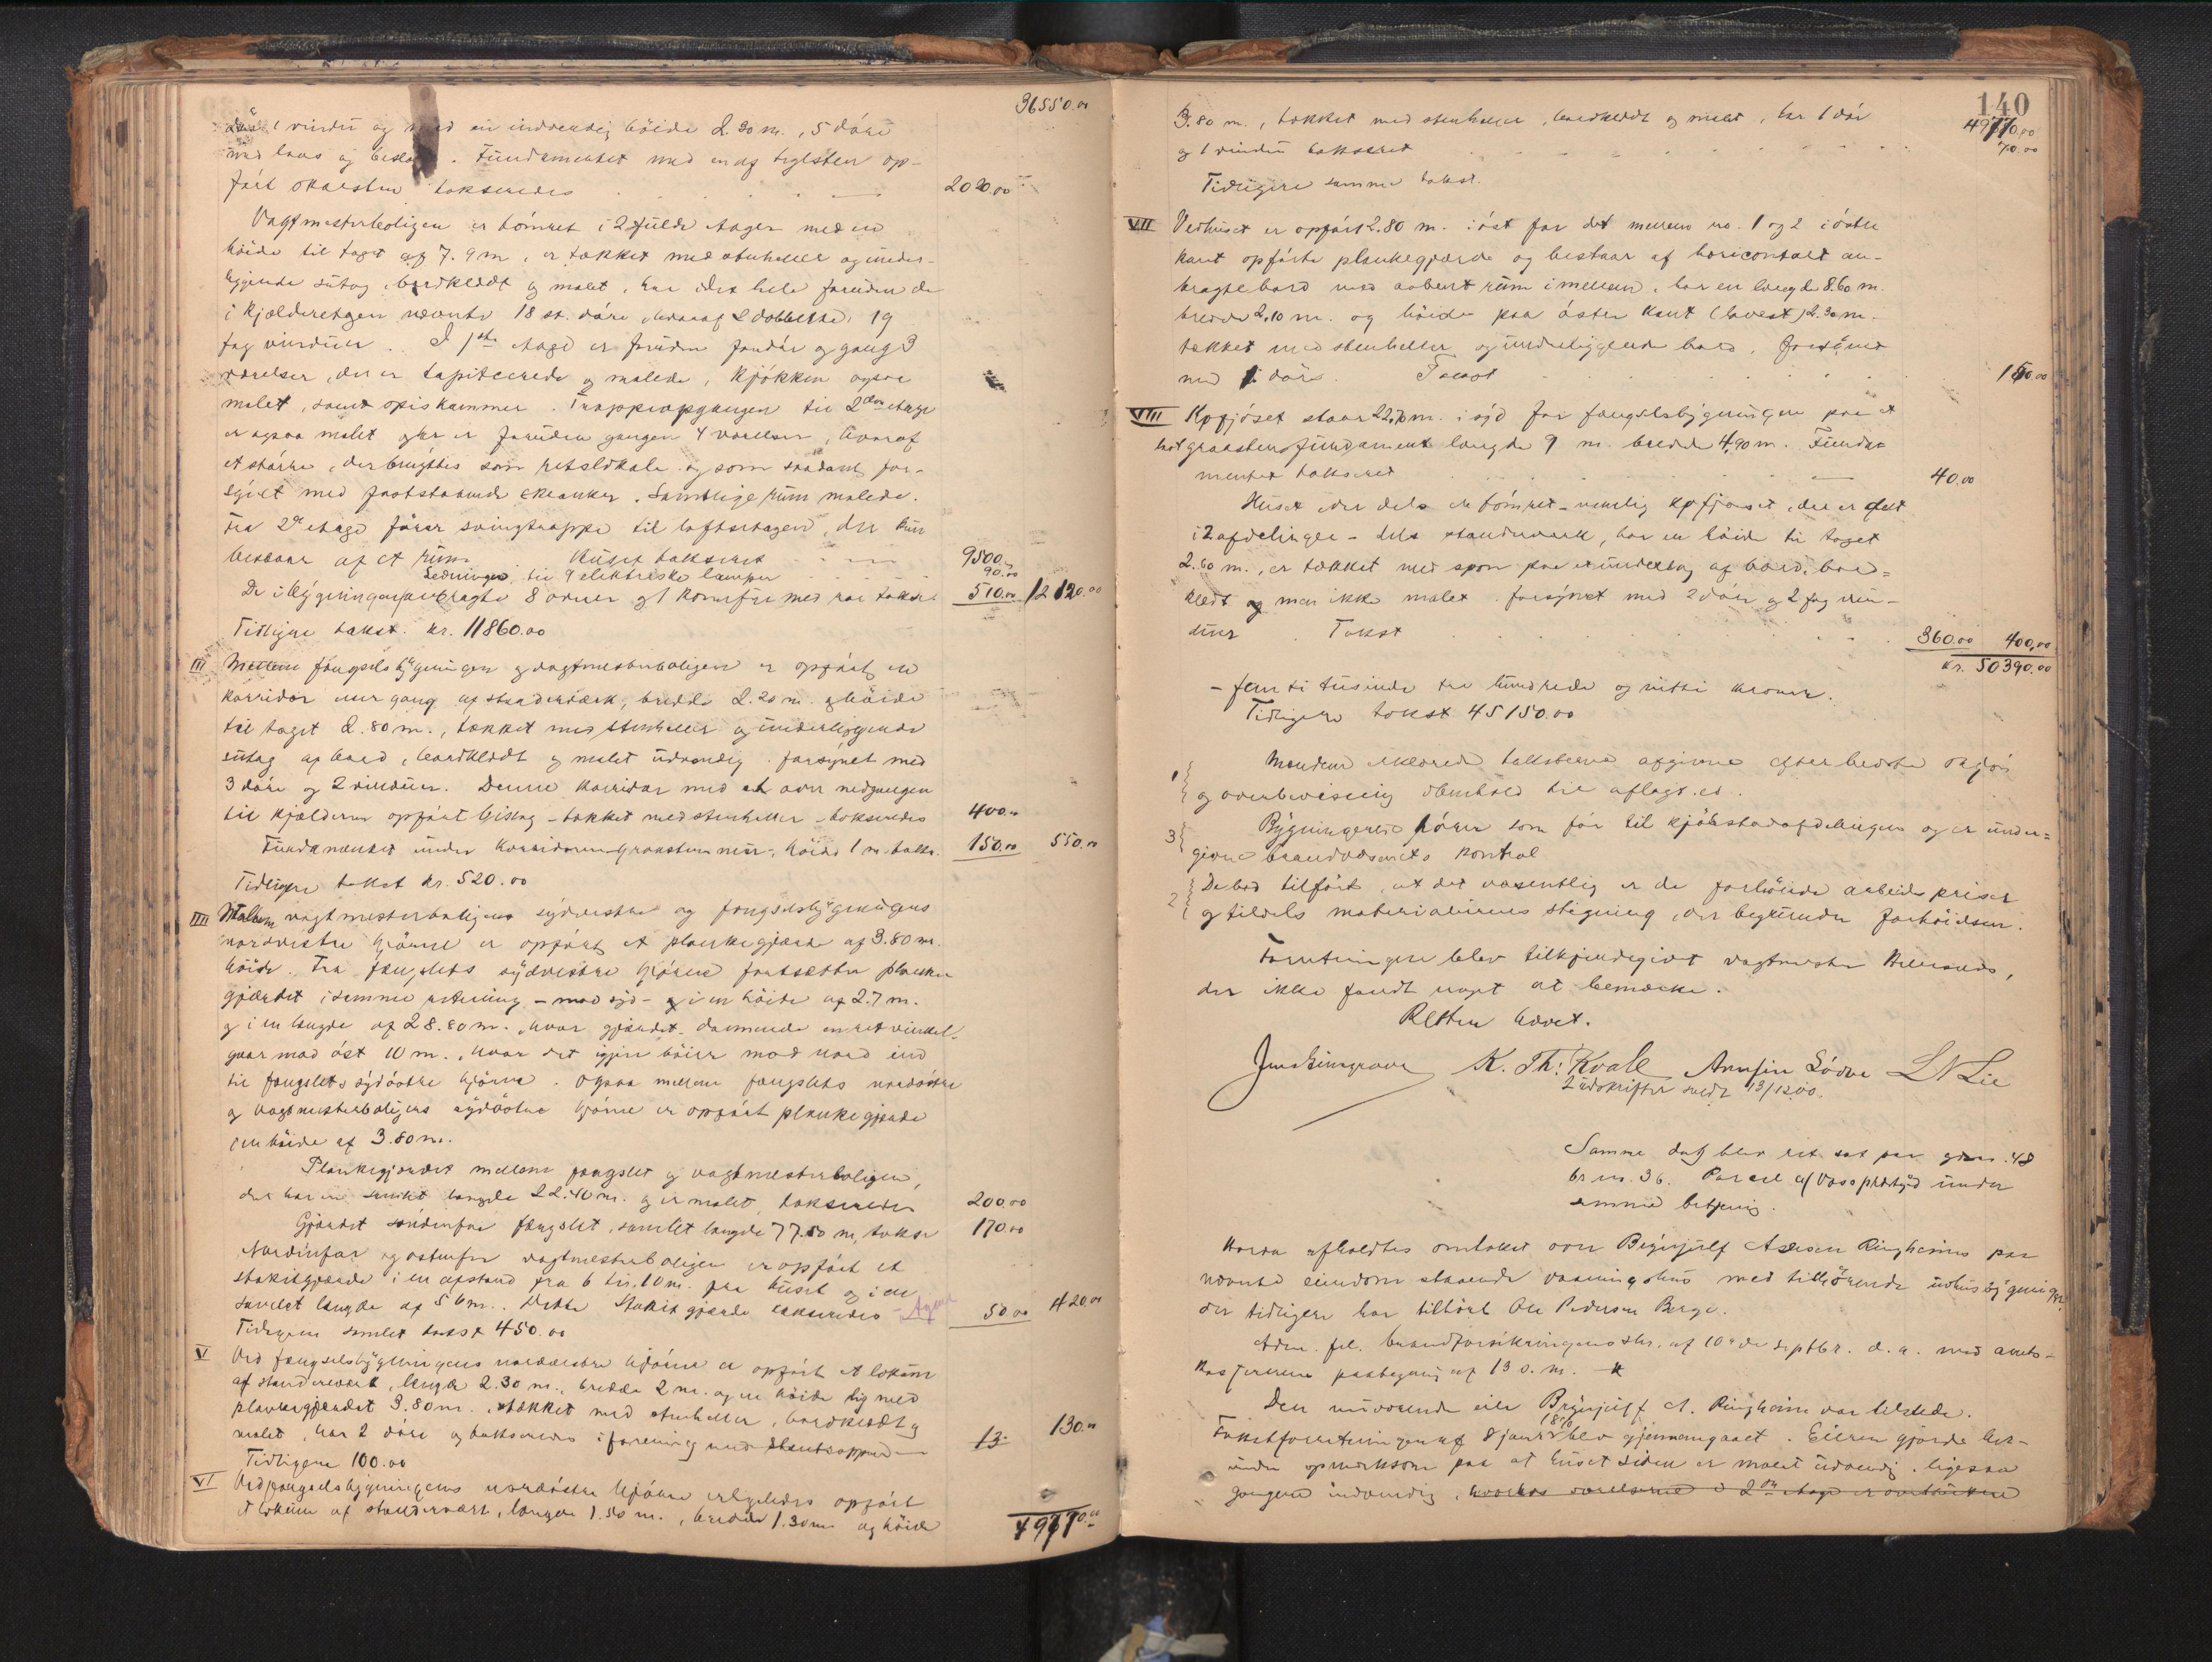 36550.00
1 vindu og med en indvendig höide 2.30 m., 5 döre
med laas og beslag. Fundamentet med en af teglsten op-
fört skorsten takseredes 2020.00
Vagtmesterboligen er tömret i 2 fulde etager med en
höide til taget af 7.9 m, er tækket med stenheller og under-
liggende sutag, bordklædt og malet, har i det hele foruden de
i kjælderetagen nævnte 18 st. döre, hvoraf 2 dobbelte, 19
fag vinduer. I 1ste etage er foruden fordör og gang 3
værelser, der er tapitcerede og malede, kjökken ogsaa
malet, samt spiskammer. Trappeopgangen til 2den etage
er ogsaa malet og her er foruden gangen 4 værelser, hvoraf
et större, der benyttes som retslokale og som saadant for-
synet med faststaaende skranker. Samtlige rum malede.
Fra 2den etage förer svingtrappe til loftsetagen, der kun
bestaar af et rum. Huset takseret 9500.00
Ledninger til 9 elektriske lamper 90.00
De i bygningen anbragte 8 ovner og 1 komfur med rör takse 510.00 12120.00
Tidligere takst. kr. 11860.00
III Mellem fængselsbygningen og vagtmesterboligen er opfört en
korridor eller gang af standerværk, bredde 2.20 m. og höide
til taget 2.80 m., tækket med stenheller og underliggende
sutag af bord, bordklædt og malet udvendig, forsynet med
3 döre og 2 vinduer. Denne korridor med et over nedgangen
til kjælderen opfört bislag - tækket med stenheller - takseredes 400.00
Fundamentet under korridoren graastensmur, höide 1 m. taks. 150.00 550.00
Tidligere takst kr. 520.00
IIII Mellem vagtmesterboligens sydvestre og fængselsbygningens
nordvestre hjörne er opfört et plankegjærde af 3.80 m.
höide. Fra fængslets sydvestre hjörne fortsætter planke
gjærdet i samme retning - mod syd - og i en höide af 2.7 m.
og i en længde af 28.80 m., hvor gjærdet dannende en ret vinkel
gaar mod öst 10 m., hvor det igjen böier mod nord ind
til fængslets sydöstre hjörne. Ogsaa mellem fængslets nordöstre
og vagtmesterboligens sydöstre hjörne er opfört plankegjærde
i en höide af 3.80 m.
Plankegjærdet mellem fængslet og vagtmesterboligen,
der har en samlet længde 22.40 m. og er malet, takseredes 200.00
Gjærdet söndenfor fængslet, samlet længde 77.50 m, takse 170.00
Nordenfor og östenfor vagtmesterboligen er opfört et
stakitgjærde i en afstand fra 6 til 10 m. fra huset og i en
samlet længde af 56 m. Dette stakitgjærde takseredes 50.00 420.00
Tidligere samlet takst 450.00
V Ved fængselsbygningens nordvestre hjörne er opfört et lokum
af standerværk, længde 2.30 m., bredde 2 m. og en höide lig med
plankegjærdet 3.80 m., tækket med stenheller, bordklædt og
malet, har 2 döre og takseredes i forening med 13 130.00
Tidligere 100.00
VI Ved fængselsbygningens nordöstre hjörne er ligeledes opfört
et lokum af standerværk, længde 1.50 m., bredde 1.30 m og höide
49770.00
140
49770.00
3.80 m., tækket med stenheller, bordklædt og malet, har 1 dör
og 1 vindu takseret 70.00
Tidligere samme takst.
VII Vedhuset er opfört 2.80 m. i öst for det mellem no. 1 og 2 i östre
kant opförte plankegjærde og bestaar af horicontalt an-
bragte bord med aabent rum imellem, har en længde 8.60 m.
bredde 2.10 m. og höide paa öster kant (lavest) 2.30 m.
tækket med stenheller og underliggende bord, forsynet
med 1 dör. Takst 150.00
VIII Kofjöset staar 22,70 m. i syd for fængselsbygningen paa et
lavt graastensfundament længde 9 m. bredde 4.90 m. Funda-
mentet takseret 40.00
Huset er dels er tömret - nemlig kofjöset, der er delt
i 2 afdelinger - dels standerværk, har en höide til taget
2.60 m., er tækket med spon paa et undertag af bord, bord-
klædt og men ikke malet, forsynet med 2 döre og 2 fag vin-
duer. Takst 360.00 400.00
kr. 50390.00
- femti tusinde tre hundrede og nitti kroner.
Tidligere takst 45150.00
1 Mændene erklærede taksterne afgivne efter bedste skjön
og overbevisning i henhold til aflagt ed.
3 Bygningerne hörer som för til kjöbstadafdelingen og er under-
givne brandvæsenets kontrol
2 De bad tilfört, at det væsentlig er de forhöiede arbeidspriser
og tildels materialernes stigning, der begrunder forhöielsen.
Forretningen blev tilkjendegivet vagtmester
der ikke fandt noget at bemærke.
Retten hævet.
K. Th: Kvale Arnfin Södve L N Lie
2 udskrifter sendt 13/12 00.
Samme dag blev ret sat paa gno. 48
br no. 36. Parcel af Vossprestegd under
samme betjening.
Hvorda afholdtes omtakst over Brynjulf Aasen Ringheims paa
nævnte eiendom staaende vaaningshus med tilhörende udhusbygninger
der tidligere har tilhört Ole Pedersen Berge.
Adm. fol. brandforsikringens skr. af 10de septbr. d. a. med amts-
kasjererens paategning af 13 s. m.
Den nuværende eier Brynjulf A. Ringheim var tilstede.
Takstforretningen af 8 janr 1890 blev gjennemgaaet. Eieren gjorde her-
under opmerksom paa at huset siden er malet udvendig, ligesaa
gangene indvendig, hvorhos værelserne i 2den etage er overtrukne